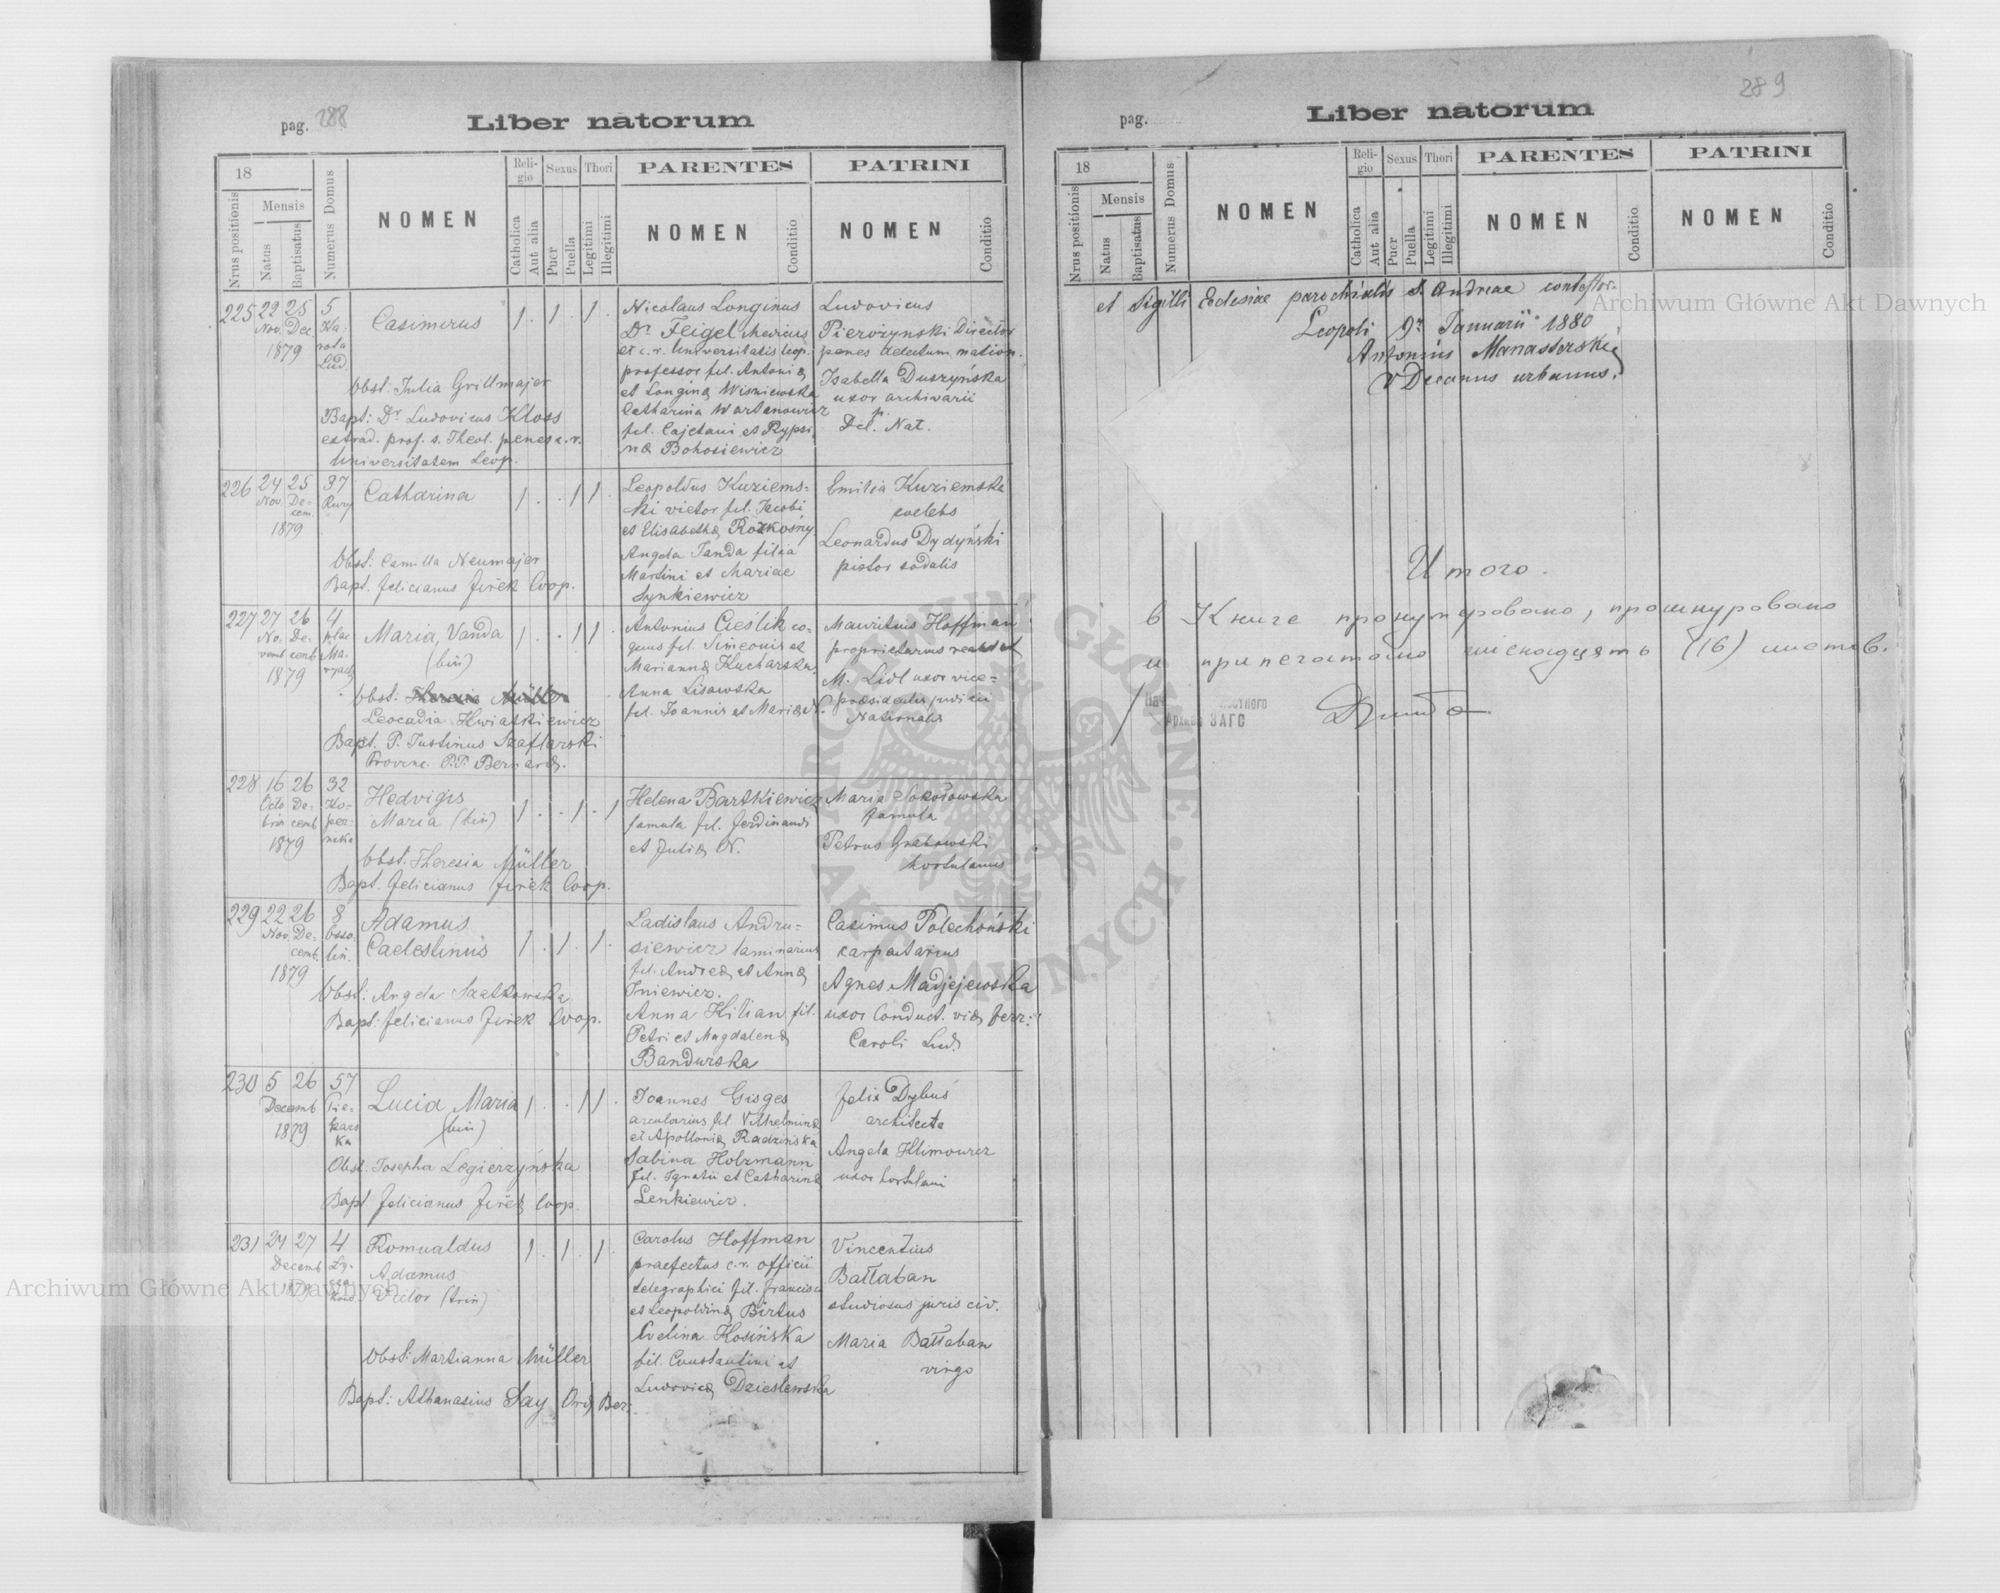 pag. 288
Liber natorum
18
Nrus positionis
Mensis
Natus
Baptisatus
Numerus Domus
NOMEN
Religio
Catholica
Aut alia
Sexus
Puer
Puella
Thori
Legitimi
Illegitimi
PARENTES
NOMEN
Conditio
PATRINI
NOMEN
Conditio
225 22 25 5
Nov. Dec.
1879
Lud.
Casimirus
1 . 1 . 1 .
Obst: Julia Grillmajer
Bapt: Dr Ludovicus Kloss
extrad. prof. s. Theol. penes c. r.
Universitatem Leop.
Nicolaus Longinus
Dr Feigel Medicus
et c. r. Universitatis Leop.
professor fil. Antonii
et Longinae Wiszniewska
Catharina Wartanowicz
fil. Cajetani et Rypsi
nae Bohosiewicz
Ludovicus
Pierożynski Director
penes delectum nation.
Isabella Duszyńska
uxor archivarii
p.
Del. Nat.
226 24 25 37
Nov. De-
cem.
1879
Rury
Catharina
1 . . 1 1 .
Obst: Camilla Neumajer
Bapt. Felicianus Jirek Coop.
Leopoldus Kuziems-
ki vietor fil. Jacobi
et Elisabethae Rozkosny
Angela Janda filia
Martini et Mariae
Synkiewicz
Emilia Kuziemska
coelebs
Leonardus Dydyński
pistor sodalis
227 27 26 4
No- De-
vemb cemb
1879
plac
Ma-
ryacki
Maria, Vanda
(bin)
1 . . 1 1 .
Obst: Theresia Müller
Leocadia Kwiatkiewicz
Bapt. P. Justinus Szaflarski
Provinc. P.P. Bernard.
Antonius Cieślik co-
quus fil. Simeonis et
Mariannae Kucharska
Anna Lisowska
fil. Joannis et Mariae N.
Mauritius Hoffman
proprietarius realitat
M. Lidl uxor vice-
praesidentis judicii
Nationalis
228 16 26 32
Octo De-
bris cemb
1879
Ko-
per-
nika
Hedvigis
Maria (bin)
1 . . 1 . 1
Obst: Theresia Müller
Bapt. Felicianus Jirek Coop.
Helena Bartkiewicz
famula fil. Ferdinandi
et Juliae N.
Maria Sokołowska
famula
Petrus Grabowski
hortulanus
229 22 26 8
Nov. De-
cemb.
1879
Osso-
lin.
Adamus
Caelestinus
1 . 1 . 1 .
Obst: Angela Szatkowska
Bapt: Felicianus Jirek Coop.
Ladislaus Andru-
siewicz laminarius
fil. Andreae et Annae
Iniewicz.
Anna Kilian fil.
Petri et Magdalenae
Bandurska
Casimus Polechoński
carpentarius
Agnes Madjejewska
uxor Conduct. viae ferr:
Caroli Lud.
230 5 26 57
Decemb
1879
Pie-
kars
ka
Lucia Maria
(bin)
1 . . 1 1 .
Obst. Josepha Legierzyńska
Bapt. Felicianus Jirek Coop.
Joannes Gisges
arcularius fil Vilhelminae
et Apolloniae Radzińska
Sabina Holzmann
fil. Ignatii et Catharinae
Lenkiewicz.
Felix Dybuś
architecta
Angela Klimowicz
uxor hortulani
231 24 27 4
Decemb
1879
Ly-
cza
kow.
Romualdus
Adamus
Victor (trin)
1 . 1 . 1 .
Obst: Martianna Müller
Bapt: Athanasius Say Ord Ber:
Carolus Hoffman
praefectus c. r. officii
telegraphici fil. Francisci
et Leopoldinae Birtus
Evelina Kosińska
fil. Constantini et
Ludovicae Dzieslewska
Vincentius
Bałłaban
studiosus juris civ.
Maria Bałłaban
virgo
289
pag.
Liber natorum
18
Nrus positionis
Mensis
Natus
Baptisatus
Numerus Domus
NOMEN
Religio
Catholica
Aut alia
Sexus
Puer
Puella
Thori
Legitimi
Illegitimi
PARENTES
NOMEN
Conditio
PATRINI
NOMEN
Conditio
et sigilli Eclesiae parochialis S. Andreae contestor.
Leopoli 9na Januarii 1880
Antonius Manasterski
VDecanus urbanus.
Итого.
В книге пронумеровано, прошнуровано
и припечатано шеснадцять (16) листов.
Архива ЗАГС
Archiwum Główne Akt Dawnych
Archiwum Główne Akt Dawnych
ARCHIWUM GŁÓWNE AKT DAWNYCH